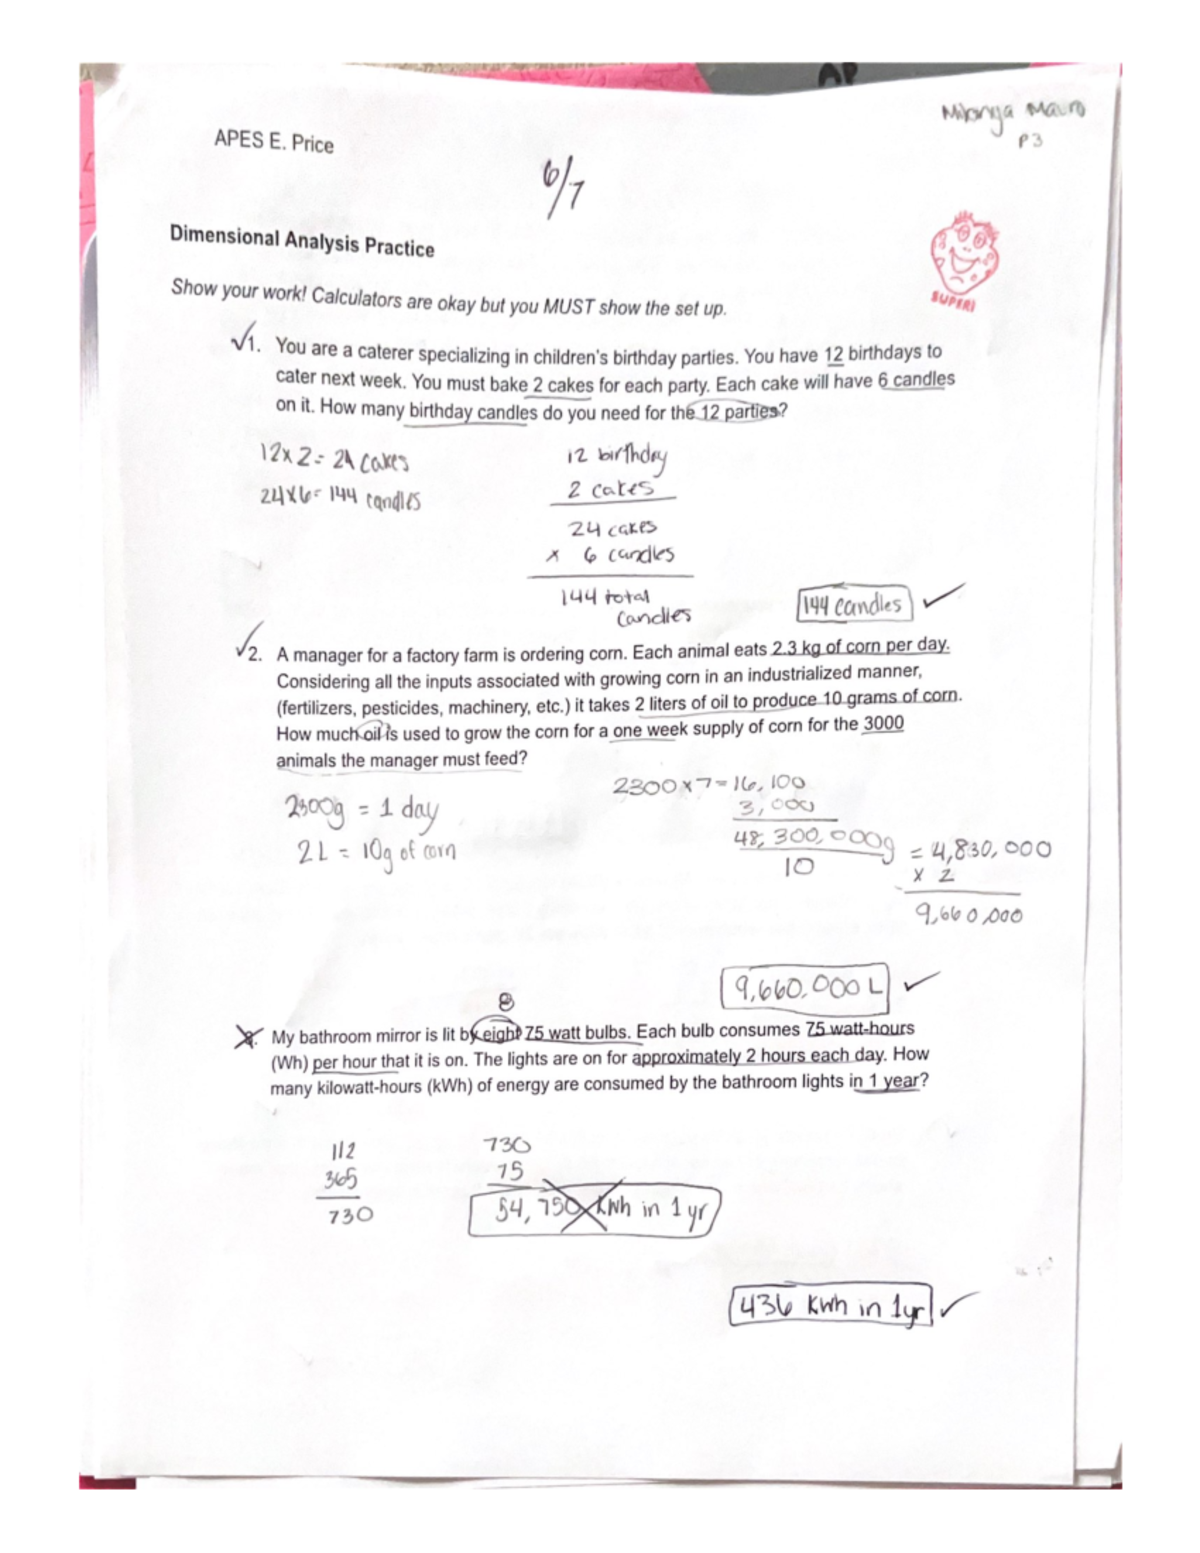 AP
Milonga Mauro
P3
APES E. Price
6/7
Dimensional Analysis Practice
SUPER!
Show your work! Calculators are okay but you MUST show the set up.
√1. You are a caterer specializing in children's birthday parties. You have 12 birthdays to
cater next week. You must bake 2 cakes for each party. Each cake will have 6 candles
on it. How many birthday candles do you need for the 12 parties?
12x2= 24 cakes
24x6= 144 candles
12 birthday
2 cakes
24 cakes
x 6 candles
144 total
candles
144 candles ✓
√2. A manager for a factory farm is ordering corn. Each animal eats 2.3 kg of corn per day.
Considering all the inputs associated with growing corn in an industrialized manner,
(fertilizers, pesticides, machinery, etc.) it takes 2 liters of oil to produce 10 grams of corn.
How much oil is used to grow the corn for a one week supply of corn for the 3000
animals the manager must feed?
2300g = 1 day
2L = 10g of corn
2300x7=16,100
3,000
48,300,000g
10
= 4,830,000
x 2
9,660,000
9,660,000 L ✓
8
My bathroom mirror is lit by eight 75 watt bulbs. Each bulb consumes 75 watt-hours
(Wh) per hour that it is on. The lights are on for approximately 2 hours each day. How
many kilowatt-hours (kWh) of energy are consumed by the bathroom lights in 1 year?
365
730
730
75
54,750 kWh in 1 yr
436 kWh in 1yr ✓